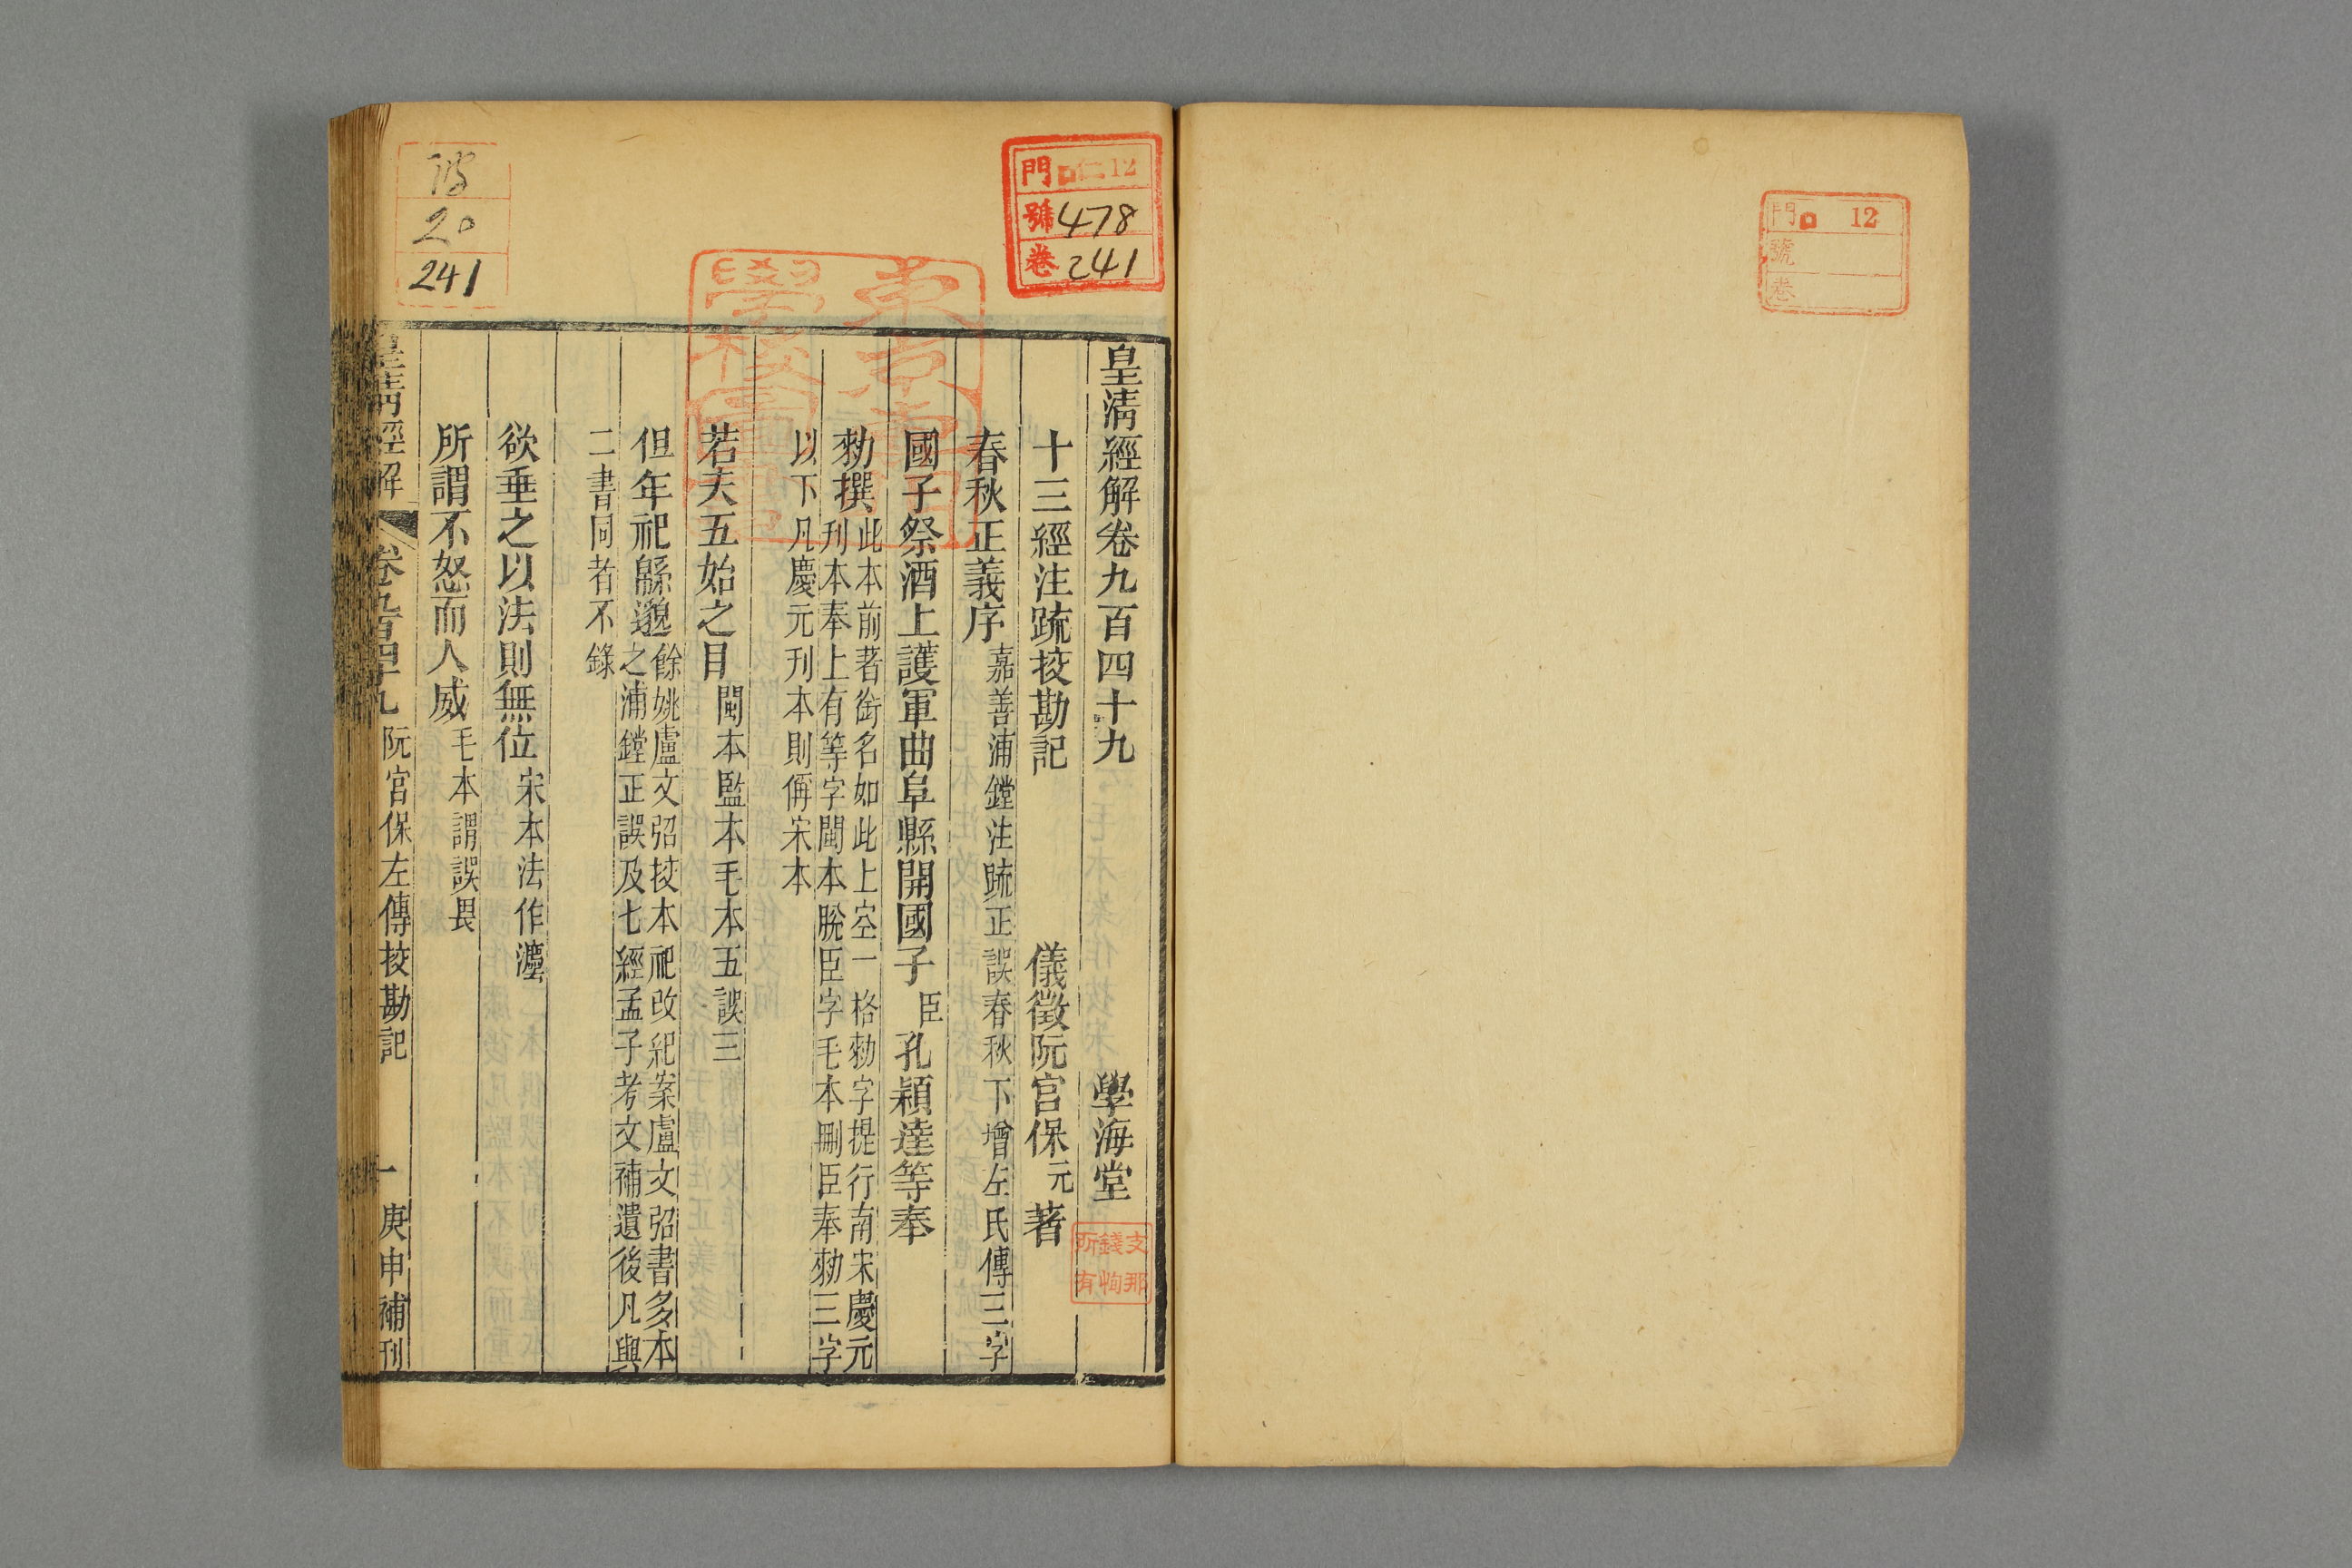 門 口 12
號
卷
門 口 仁 12
號 478
卷 241
皇清經解卷九百四十九 學海堂
支那錢恂所有
十三經注疏挍勘記 儀徵阮宮保元著
春秋正義序 嘉善浦鏜注疏正誤春秋下增左氏傳三字
國子祭酒上護軍曲阜縣開國子臣孔穎達等奉
勑撰 此本前著銜名如此上空一格勑字提行南宋慶元
刊本奉上有等字閩本脫臣字毛本刪臣奉勑三字
以下凡慶元刊本則偁宋本
若夫五始之目 閩本監本毛本五誤三
但年祀緜邈 餘姚盧文弨挍本祀改紀案盧文弨書多本
之浦鏜正誤及七經孟子考文補遺後凡與
二書同者不錄
欲垂之以法則無位 宋本法作灋
所謂不怒而人威 毛本謂誤畏
皇清經解 卷九百四十九 阮宮保左傳挍勘記 一 庚申補刊
20
241